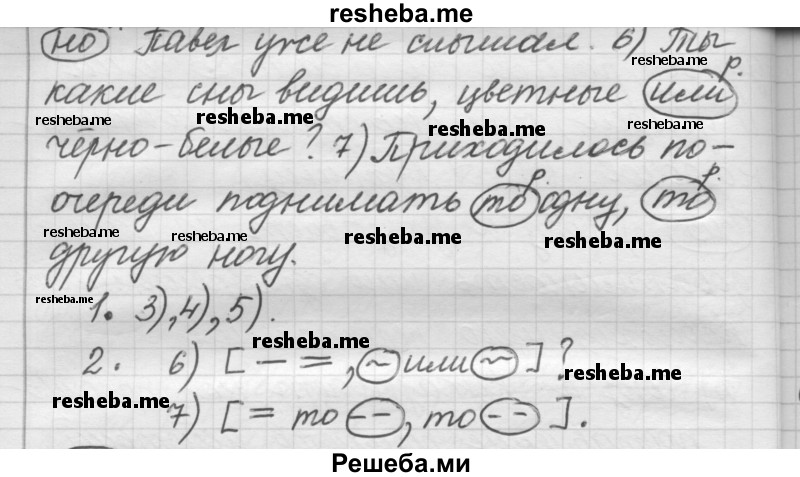 resheba.me
но Павел уже не слышал. 6) Ты
resheba.me р.
какие сны видишь, цветные или
resheba.me resheba.me resheba.me resheba.me
чёрно-белые? 7) Приходилось по-
р. р.
очереди поднимать то одну, то
resheba.me resheba.me resheba.me resheba.me
другую ногу.
resheba.me
1. 3), 4), 5).
resheba.me
2. 6) [— =, ~ или ~]?
resheba.me resheba.me
7) [= то – –, то – –].
Решеба.ми